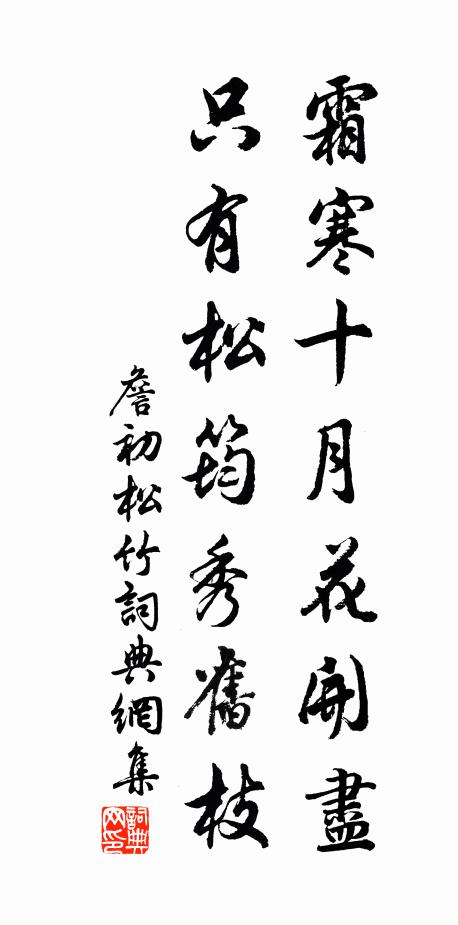 霜寒十月花開盡
只有松筠秀舊枝
詹初松竹詞典網集
詞典网印